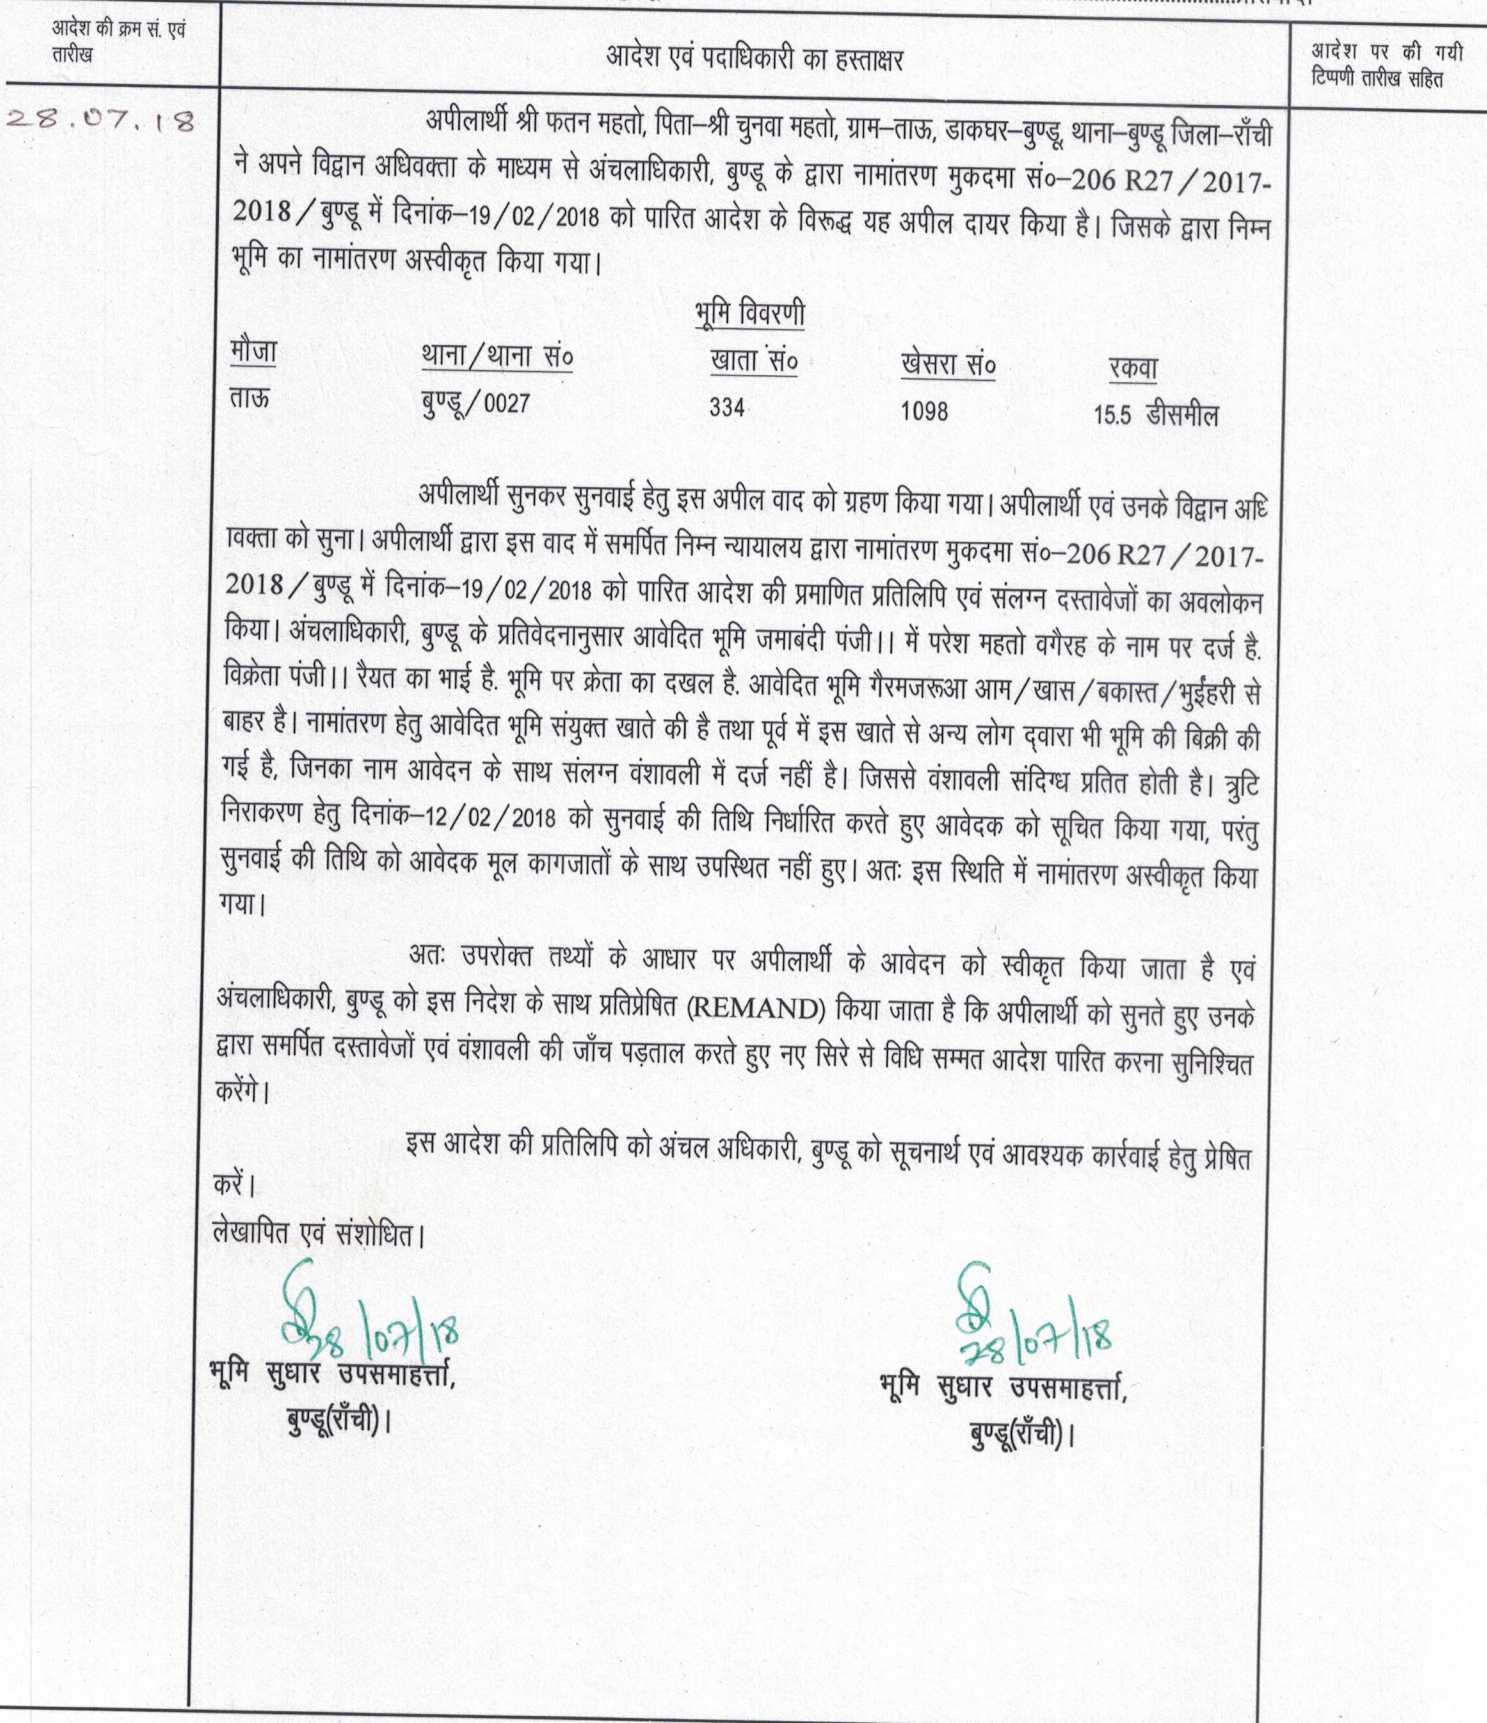 आदेश की क्रम सं. एवं
तारीख
आदेश एवं पदाधिकारी का हस्ताक्षर
आदेश पर की गयी
टिप्पणी तारीख सहित
28.07.18
अपीलार्थी श्री फतन महतो, पिता–श्री चुनवा महतो, ग्राम–ताऊ, डाकघर–बुण्डू, थाना–बुण्डू जिला–राँची
ने अपने विद्वान अधिवक्ता के माध्यम से अंचलाधिकारी, बुण्डू के द्वारा नामांतरण मुकदमा सं०–206 R27/2017-
2018/बुण्डू में दिनांक–19/02/2018 को पारित आदेश के विरूद्ध यह अपील दायर किया है। जिसके द्वारा निम्न
भूमि का नामांतरण अस्वीकृत किया गया।
भूमि विवरणी
मौजा थाना/थाना सं० खाता सं० खेसरा सं० रकवा
ताऊ बुण्डू/0027 334 1098 15.5 डीसमील
अपीलार्थी सुनकर सुनवाई हेतु इस अपील वाद को ग्रहण किया गया। अपीलार्थी एवं उनके विद्वान अधि
ावक्ता को सुना। अपीलार्थी द्वारा इस वाद में समर्पित निम्न न्यायालय द्वारा नामांतरण मुकदमा सं०–206 R27/2017-
2018/बुण्डू में दिनांक–19/02/2018 को पारित आदेश की प्रमाणित प्रतिलिपि एवं संलग्न दस्तावेजों का अवलोकन
किया। अंचलाधिकारी, बुण्डू के प्रतिवेदनानुसार आवेदित भूमि जमाबंदी पंजी।। में परेश महतो वगैरह के नाम पर दर्ज है.
विक्रेता पंजी।। रैयत का भाई है. भूमि पर क्रेता का दखल है. आवेदित भूमि गैरमजरूआ आम/खास/बकास्त/भुईंहरी से
बाहर है। नामांतरण हेतु आवेदित भूमि संयुक्त खाते की है तथा पूर्व में इस खाते से अन्य लोग द्वारा भी भूमि की बिक्री की
गई है, जिनका नाम आवेदन के साथ संलग्न वंशावली में दर्ज नहीं है। जिससे वंशावली संदिग्ध प्रतित होती है। त्रुटि
निराकरण हेतु दिनांक–12/02/2018 को सुनवाई की तिथि निर्धारित करते हुए आवेदक को सूचित किया गया, परंतु
सुनवाई की तिथि को आवेदक मूल कागजातों के साथ उपस्थित नहीं हुए। अतः इस स्थिति में नामांतरण अस्वीकृत किया
गया।
अतः उपरोक्त तथ्यों के आधार पर अपीलार्थी के आवेदन को स्वीकृत किया जाता है एवं
अंचलाधिकारी, बुण्डू को इस निदेश के साथ प्रतिप्रेषित (REMAND) किया जाता है कि अपीलार्थी को सुनते हुए उनके
द्वारा समर्पित दस्तावेजों एवं वंशावली की जाँच पड़ताल करते हुए नए सिरे से विधि सम्मत आदेश पारित करना सुनिश्चित
करेंगे।
इस आदेश की प्रतिलिपि को अंचल अधिकारी, बुण्डू को सूचनार्थ एवं आवश्यक कार्रवाई हेतु प्रेषित
करें।
लेखापित एवं संशोधित।
28/07/18 28/07/18
भूमि सुधार उपसमाहर्त्ता, भूमि सुधार उपसमाहर्त्ता,
बुण्डू(राँची)। बुण्डू(राँची)।